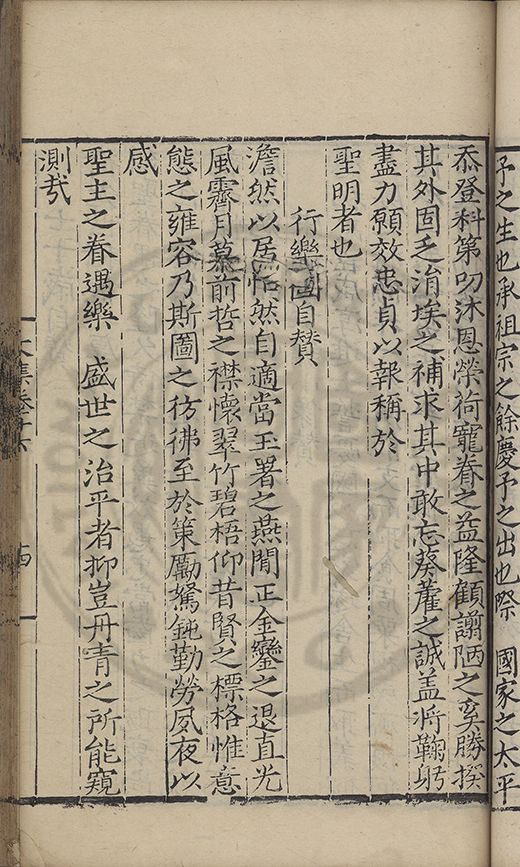 予之生也承祖宗之餘慶予之出也際　國家之太平
忝登科第叨沐恩榮荷寵眷之益隆顧謭陋之奚勝揆
其外固乏涓埃之補求其中敢忘葵藿之誠盖將鞠躬
盡力願效忠貞以報稱於
聖明者也
行樂圖自賛
澹然以居怡然自適當玉署之燕閒正金鑾之退直光
風霽月慕前哲之襟懷翠竹碧梧仰昔賢之標格惟意
態之雍容乃斯圖之彷彿至於策勵駑鈍勤勞夙夜以
感
聖主之眷遇樂　盛世之治平者抑豈丹青之所能窺
測㢤
文集卷十六
十四